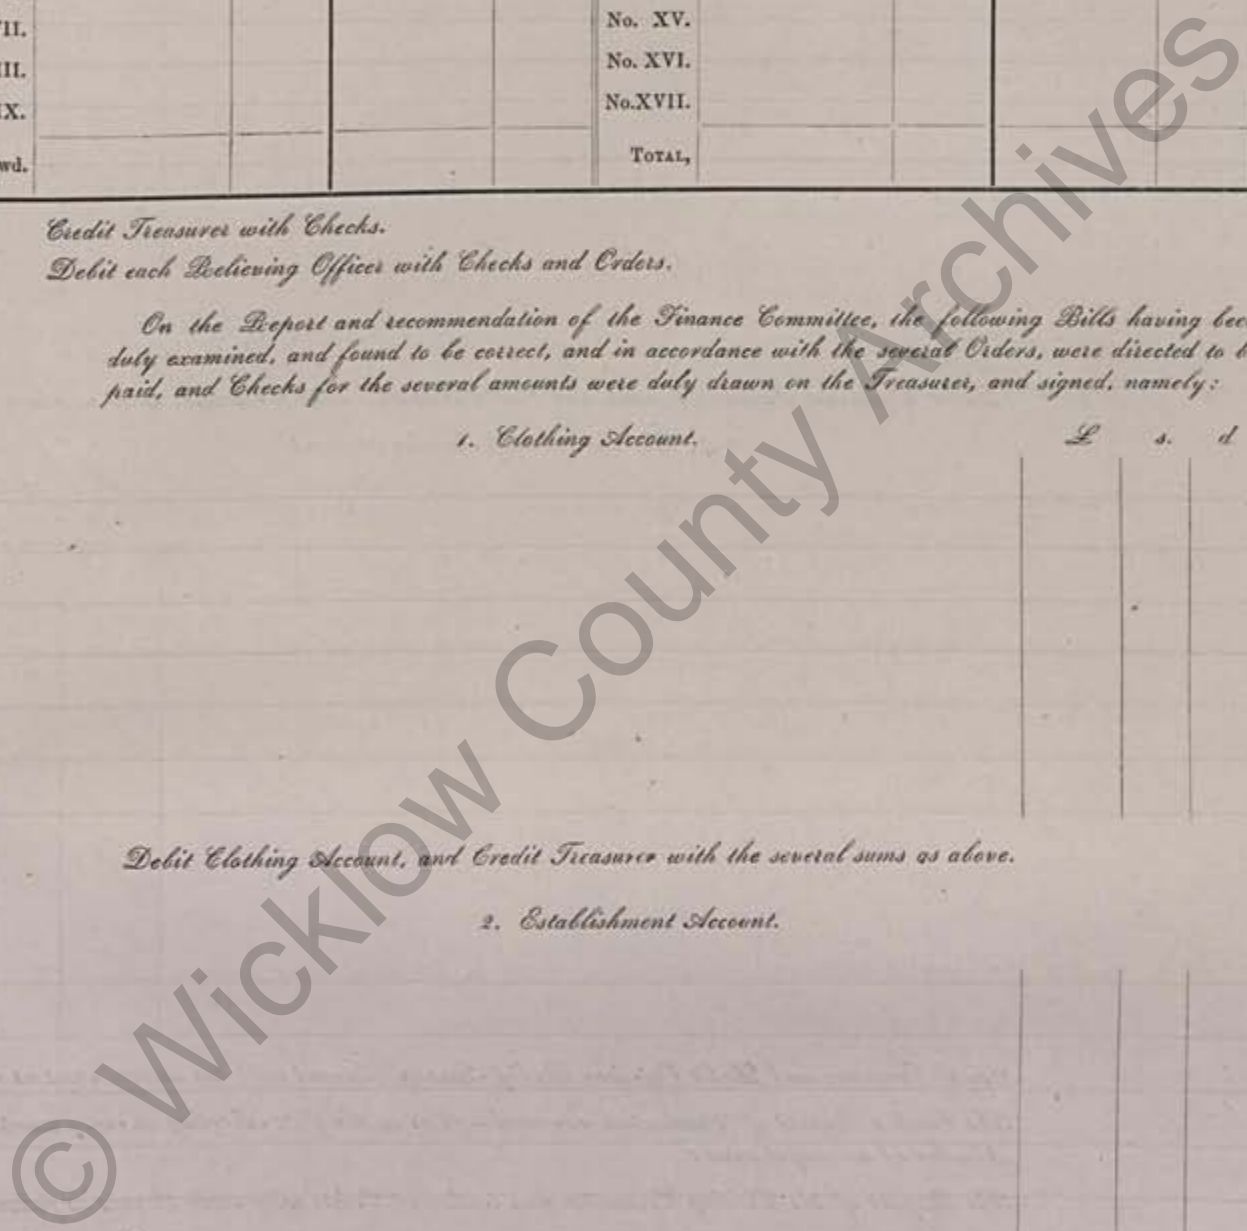 VII.
No. XV.
III.
No. XVI.
IX.
No.XVII.
wd.
TOTAL,
Credit Treasurer with Checks.
Debit each Relieving Officer with Checks and Orders.
On the Report and recommendation of the Finance Committee, the following Bills having bee
duly examined, and found to be correct, and in accordance with the several Orders, were directed to b
paid, and Checks for the several amounts were duly drawn on the Treasurer, and signed, namely:
1. Clothing Account. £ s. d
Debit Clothing Account, and Credit Treasurer with the several sums as above.
2. Establishment Account.
© Wicklow County Archives